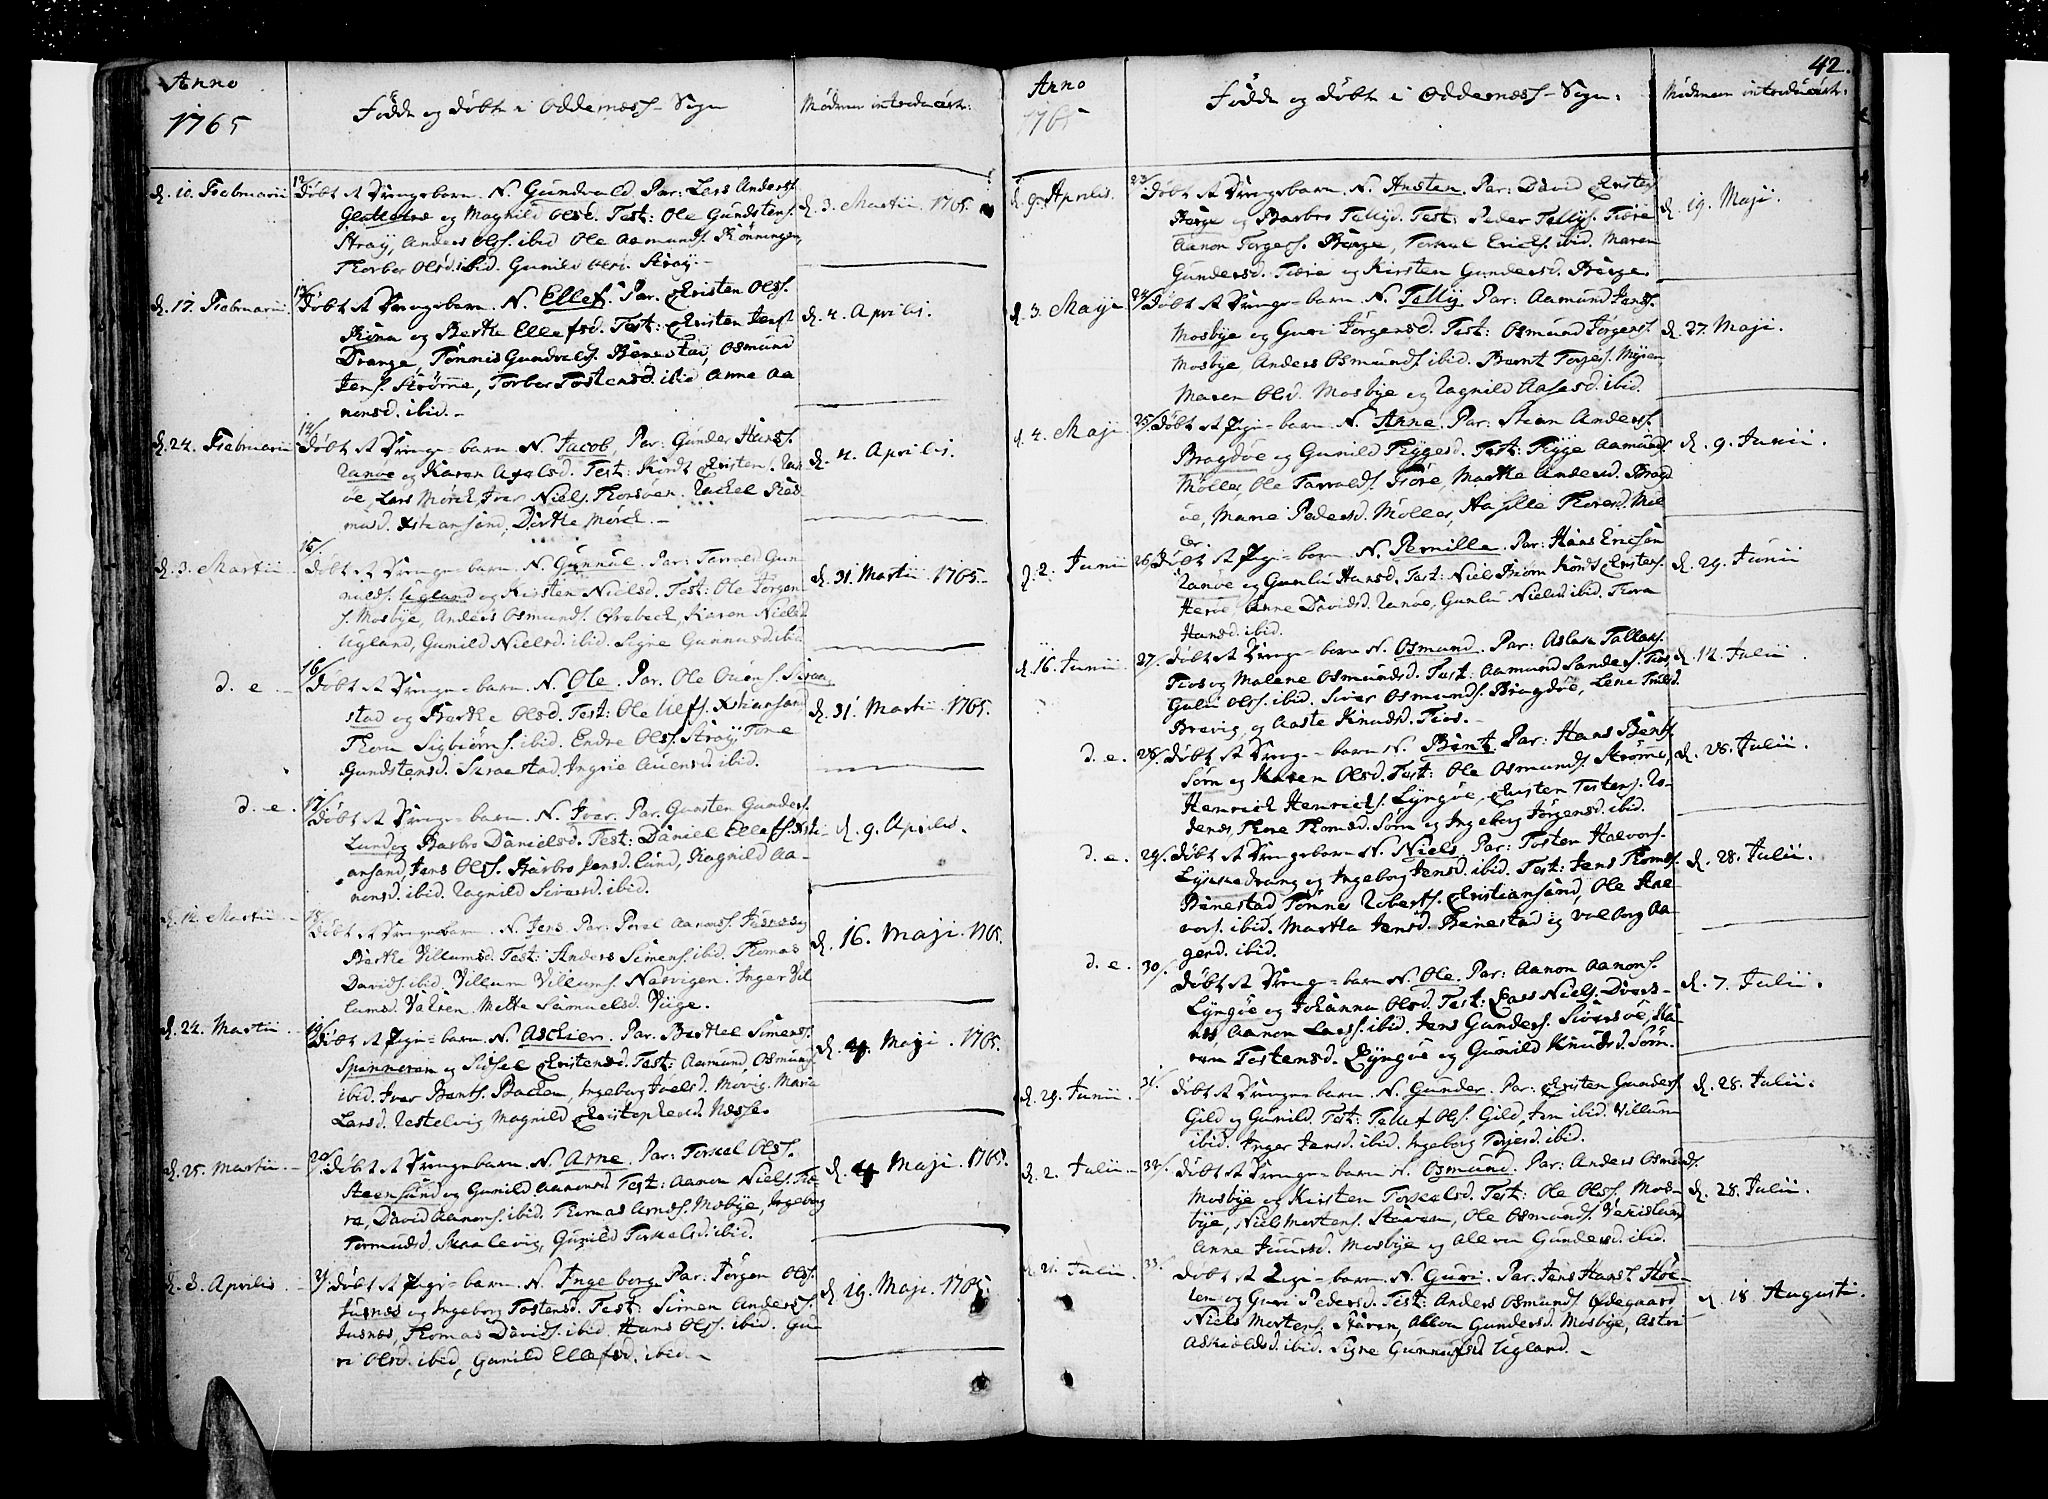 Anno
1765
Födde og döbte i Oddernæss-Sogn
Mödrene introducert:
d. 10. Februarii
12/ Döbt et Drengebarn. N. Gundvald. Par: Lars Anderss.
og Magnild Olsd. Test: Ole Gundstens.
Straÿ, Anders Olss. ibid Ole Aamunds. Rönningen,
Thorbor Olsd. ibid. Gunild Olsd. Straÿ.-
d. 3. Martii 1765.
d. 17. Februarii
13/ Döbt et Drengebarn. N. Ellef. Par. Christen Olss.
Kiöna og Berthe Ellefsd. Test: Christen Jenss.
Drange, Tönnis Gundvalds. Benestad, Osmund
Jens. Strömme, Torbor Tostensd. ibid Anne Aa
nonsd. ibid.-
d. 4. Aprilis.
d. 24. Februarii
14/ Döbt et Drenge-barn N. Jacob, Par: Gunder Hanss.
Ranöe og Karen Axelsd. Test: Kordt Christens. Ran
öe, Lars Mörck Iver Niels. Thorsöen. Rachel Ras
musd. Xstiansand, Dorthe Mörck.-
d. 4. Aprilis.
d. 3. Martii
15/ Döbt et Drenge-barn. N. Gunnue. Par: Tarrald Gun
nulds. Ugland og Kirsten Nielsd. Test: Ole Jörgen
s. Mosbÿe, Anders Osmunds. Aarebeck, Karen Nielsd
Ugland, Gunild Nielsd. ibid. Signe Gunnusd. ibid
d. 31. Martii 1765.
d. e.
16/ Döbt et Drenge-barn. N. Ole. Par. Ole Ouens. Straa
stad og Berthe Olsd. Test: Ole Ulefs. Xstiansand
Thom Sigbiörns. ibid. Endre Olss. Straÿ, Tone
Gundstensd. Straastad, Ingrie Auensd. ibid.
d. 31. Martii. 1765.
d. e.
17/ Döbt et Drenge-barn. N. Ivar. Par. Gunsten Gunders.
Lund og Barbro Danielsd. Test: Daniel Ellefs. Xsti-
ansand, Jens Olss. Barbro Jensd. Lund, Ragnild Aa-
nonsd. ibid. Ragnild Siversd. ibid.
d. 9. Aprilis.
d. 14. Martii
18/ Döbt et Drengebarn. N. Jens. Par: Povel Aanonss. Justnes og
Berthe Villumsd. Test: Anders Simens. ibid. Thomas
Davids. ibid. Villum Villums. Næsvigen. Inger Vil
lumsd. Mette Samuelsd. Viige.
d. 16. Maji. 1765.
d. 24. Martii
19/ Döbt et Pige-barn. N. Aschier. Par. Berthel Simens.
Spanneren og Sidsel Christensd. Test: Aamund Osmunds
ibid. Ivar Bents. Bachen, Ingeborg Joelsd. Movig. Marie
Larsd. Vestelvig Magnild Christophersd. Næsset.
d. 4. Maji. 1765.
d. 25. Martii
20/ Döbt et Drengebarn. N. Arne. Par: Torkal Olss.
Steensund og Gunild Aanonsd Test: Aanon Niels. Tie
re, David Aanons. ibid. Thomas Arness. Mosbÿe, Ingeborg
Tormudsd. Skaalevig, Gunild Torkelsd. ibid.
d. 4 Maji. 1765.
d. 8. Aprilis
21/ Döbt et Pige-barn. N. Ingeborg Par: Jörgen Olss.
Jusnæs og Ingeborg Tostensd. Test: Simen Anderss.
Jusnæs, Thomas Davids. ibid. Hans Olss. ibid. Gu
ri Olsd. ibid, Gunild Ellefsd. ibid.-
d. 19. Maji. 1765.
Anno
1765
Födde og döbte i Oddernæss-Sogn:
Mödrene introducert:
42.
d. 9. Aprilis.
23/ Döbt et Drengebarn. N. Ansten. Par: David Christens.
Berge og Barbro Tellejsd. Test: Peder Tellejs. Tiöre
Aanon Torgers. Berge, Torkel Erichs. ibid. Maren
Gundersd. Tiöre og Kirsten Gundersd. Berge.
d. 19. Maji.
d. 3. Maji
24/ Döbt et Drenge-barn N. Tellÿ. Par: Aamund Jenss.
Mosbÿe og Guri Jörgensd. Test: Osmund Jörgens.
Mosbÿe Anders Osmunds. ibid. Bernt Torjess. Mÿren,
Maren Olsd. Mosbÿe og Ragnild Aasesd. ibid.
d. 27. Maji.
d. 4. Maji
25/ Döbt et Pige-barn N. Anne. Par: Stian Anderss.
Bragdöe og Gunild Tÿggesd. Test: Tÿgge Aamunds
Möller, Ole Tarralds. Tiöre, Marthe Andersd. Bragd
öe, Marie Pedersd. Möller, Aasille Thoresd. Möl
ler.
d. 9. Junii.
d. 2. Junii
26/ Döbt et Pige-barn. N. Pernille. Par: Hans Ericsön
Ranöe og Gunlu Hansd. Test: Niels Biörn Kordt Christens.
Heröe Anne Davidsd. Ranöe, Gunlu Nielsd ibid. Tiöra
Hansd. ibid.
d. 29. Junii
d. 16. Junii
27/ Döbt et Drenge-barn N. Osmund. Par: Aslach Tallaks.
Tios og Malene Osmundsd. Test: Aamund Sanders. Tios,
Gulu Olss. ibid. Siver Osmunds. Bragdöe, Lene Trulsd.
Brevig, og Aaste Knudsd. Tios.-
d. 14. Julii
d. e.
28/ Döbt et Drenge-barn N. Bent. Par: Hans Bents.
Sörn og Karen Olsd. Test: Ole Osmunds. Strömme,
Henrich Henrichs. Lÿngöe, Christen Testens. Ro-
denes, Thore Thomsd. Sörn og Ingeborg Jörgensd. ibid.
d. 28. Julii.
d. e.
29/ Döbt et Drengebarn N. Niels Par: Tosten Halvors.
Lÿkkedrang og Ingeborg Jensd. ibid. Test: Jens Thomes.
Benestad Tönnes Roberts. Christiansand, Ole Hal-
vors. ibid. Martha Jensd. Benestad og Valborg Aa-
gesd. ibid.
d. 28. Julii.
d. e.
30/ Döbt et Drenge-barn N. Ole. Par: Aanon Aanons.
Lÿngöe og Johanna Olsd. Test: Lars Niels. Dvers-
nes Aanon Larss. ibid. Jens Gunders. Siversöe, Ka-
ren Tostensd. Lÿngöe og Gunild Knudsd. Sörn.
d. 7. Julii.
d. 29. Junii.
31/ Döbt et Drenge-barn N. Gunder. Par: Christen Gunders.
Gild og Gunild. Test: Tellef Olss. Gild, Jon ibid. Villum
ibid. Inger Jensd. ibid. Ingeborg Torjesd. ibid.
d. 28. Julii.
d. 2. Julii
32/ Döbt et Drenge-barn N. Osmund. Par: Anders Osmunds.
Mosbÿe og Kirsten Torkelsd. Test: Ole Olss. Mos-
bÿe, Niels Mortens. Stÿren, Ole Osmunds.
Anne Juursd. Mosbÿe og Allou Gundersd. ibid.
d. 28. Julii.
d. 21. Julii
33/ Döbt et Pige-barn. N. Guri. Par. Jens Hanss. Höl-
len og Guri Pedersd. Test: Anders Osmunds. Ödegaard
Niels Mortens. Stÿren, Allou Gundersd. Mosbÿe, Astri
Askieldsd. ibid. Signe Gunnufsd Ugland.-
d. 18. Augusti.